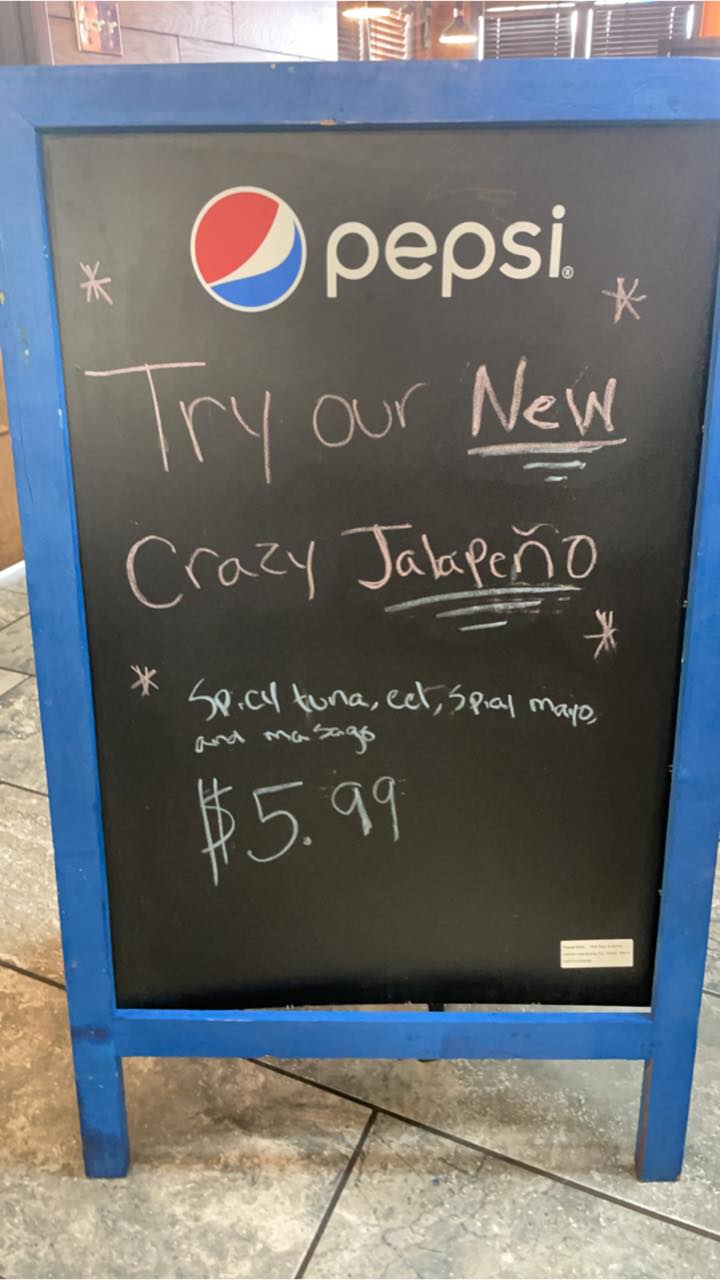 pepsi®
Try our New
Crazy Jalapeño
Spicy tuna, eel, Spicy mayo,
and masago
$5.99